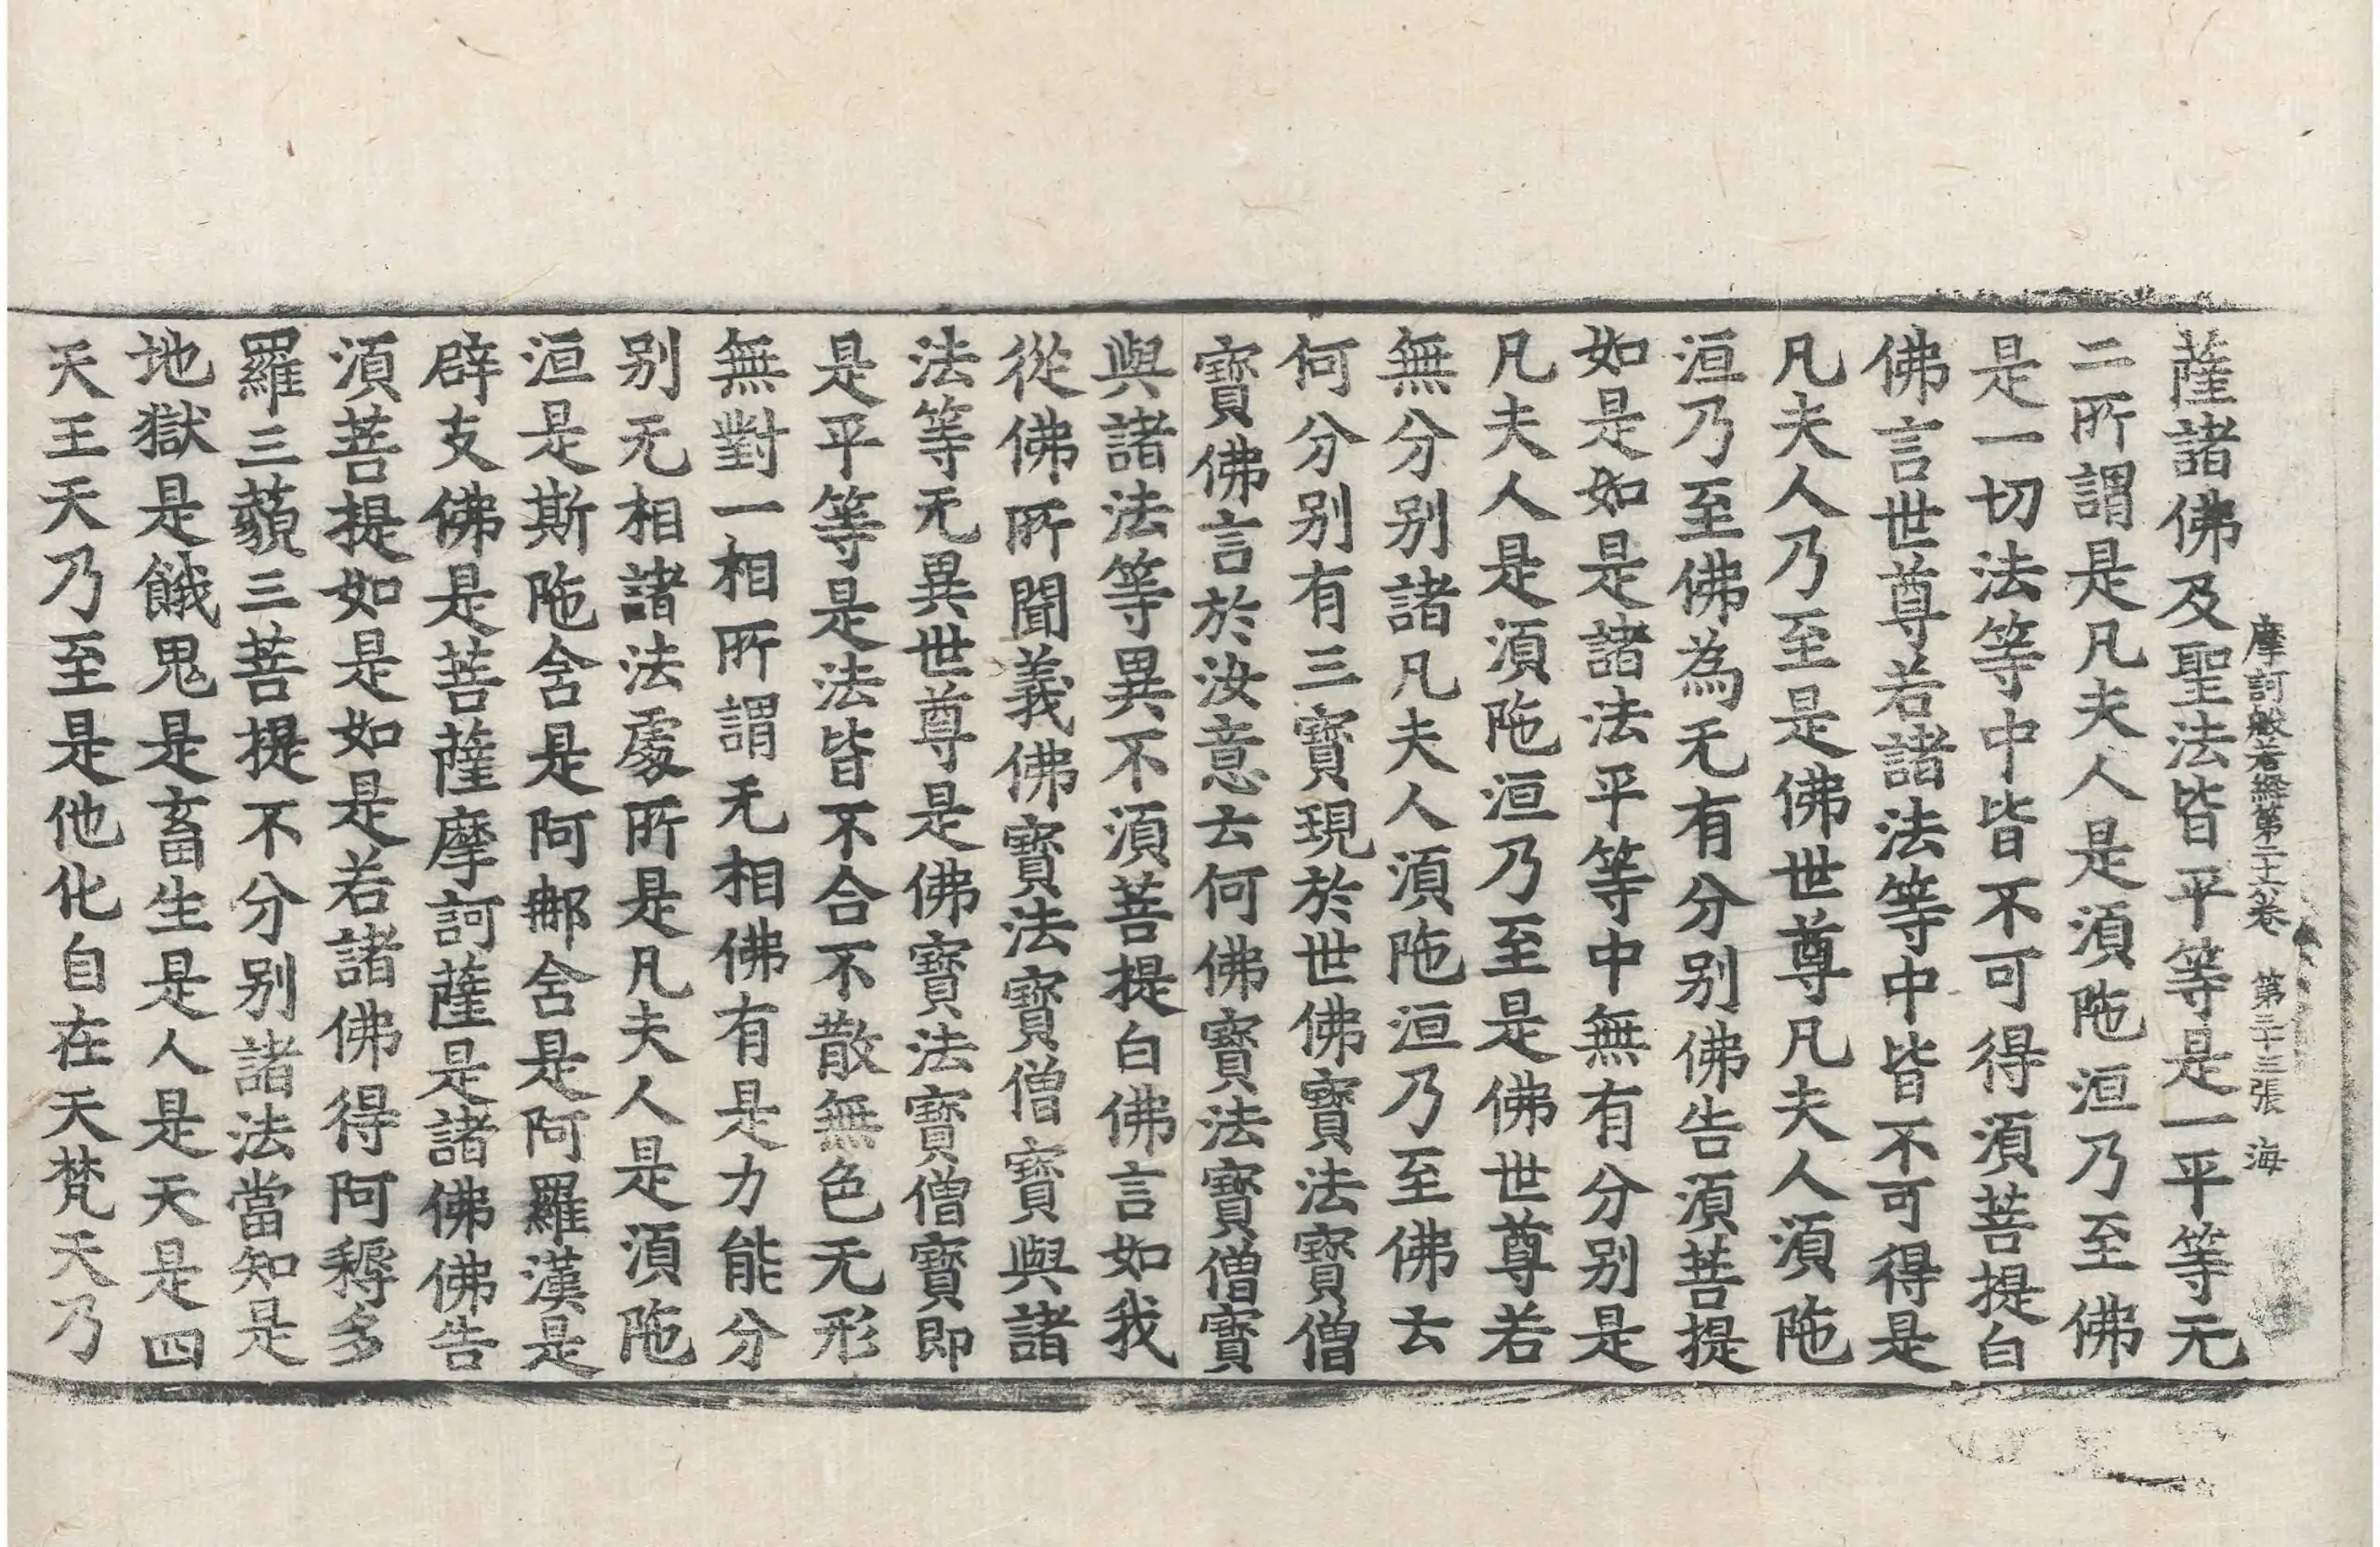 摩訶般若經第二十六卷 第二十三張 海
薩諸佛及聖法皆平等是一平等无
二所謂是凡夫人是須陁洹乃至佛
是一切法等中皆不可得須菩提白
佛言世尊若諸法等中皆不可得是
凡夫人乃至是佛世尊凡夫人須陁
洹乃至佛為无有分别佛告須菩提
如是如是諸法平等中無有分别是
凡夫人是須陁洹乃至是佛世尊若
無分别諸凡夫人須陁洹乃至佛云
何分别有三寶現於世佛寶法寶僧
寶佛言於汝意云何佛寶法寶僧寶
與諸法等異不須菩提白佛言如我
從佛所聞義佛寶法寶僧寶與諸
法等无異世尊是佛寶法寶僧寶即
是平等是法皆不合不散無色无形
無對一相所謂无相佛有是力能分
别无相諸法處所是凡夫人是須陁
洹是斯陁含是阿那含是阿羅漢是
辟支佛是菩薩摩訶薩是諸佛佛告
須菩提如是如是若諸佛得阿耨多
羅三藐三菩提不分别諸法當知是
地獄是餓鬼是畜生是人是天是四
天王天乃至是他化自在天梵天乃